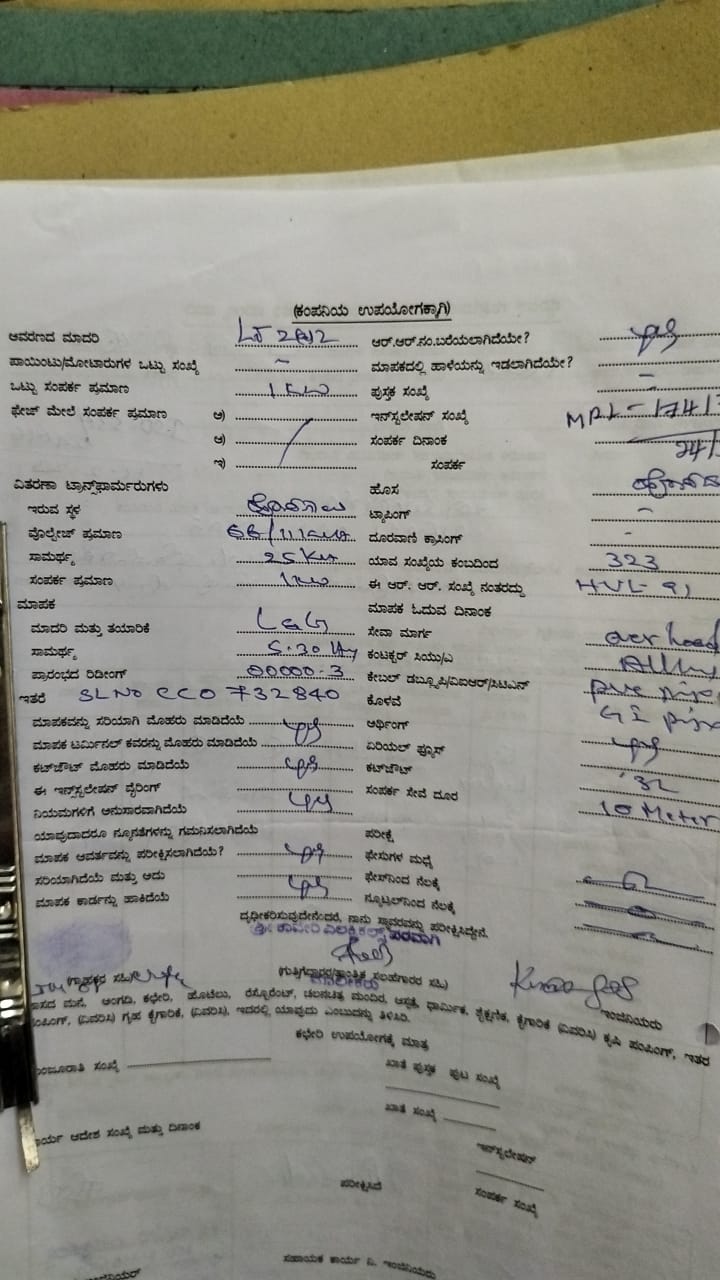 (ಕಂಪನಿಯ ಉಪಯೋಗಕ್ಕಾಗಿ)
ಆವರಣದ ಮಾದರಿ ಆರ್.ಆರ್.ನಂ.ಬರೆಯಲಾಗಿದೆಯೇ? yes
ಪಾಯಿಂಟು/ಮೋಟಾರುಗಳ ಒಟ್ಟು ಸಂಖ್ಯೆ - ಮಾಪಕದಲ್ಲಿ ಹಾಳೆಯನ್ನು ಇಡಲಾಗಿದೆಯೇ? -
ಒಟ್ಟು ಸಂಪರ್ಕ ಪ್ರಮಾಣ 1KW ಪುಸ್ತಕ ಸಂಖ್ಯೆ -
ಫೇಜ್ ಮೇಲೆ ಸಂಪರ್ಕ ಪ್ರಮಾಣ ಅ) ಇನ್‌ಸ್ಟಲೇಷನ್ ಸಂಖ್ಯೆ
ಆ) ಸಂಪರ್ಕ ದಿನಾಂಕ
ಇ) ಸಂಪರ್ಕ
ವಿತರಣಾ ಟ್ರಾನ್ಸ್‌ಫಾರ್ಮರುಗಳು ಹೊಸ
ಇರುವ ಸ್ಥಳ ಟ್ಯಾಪಿಂಗ್ -
ವೋಲ್ಟೇಜ್ ಪ್ರಮಾಣ ದೂರವಾಣಿ ಕ್ರಾಸಿಂಗ್ -
ಸಾಮರ್ಥ್ಯ ಯಾವ ಸಂಖ್ಯೆಯ ಕಂಬದಿಂದ 323
ಸಂಪರ್ಕ ಪ್ರಮಾಣ 1KW ಈ ಆರ್. ಆರ್. ಸಂಖ್ಯೆ ನಂತರದ್ದು HVL-91
ಮಾಪಕ ಮಾಪಕ ಓದುವ ದಿನಾಂಕ
ಮಾದರಿ ಮತ್ತು ತಯಾರಿಕೆ L&G ಸೇವಾ ಮಾರ್ಗ over head
ಸಾಮರ್ಥ್ಯ 5-30 ಕಂಟಕ್ಟರ್ ಸಿಯು/ಎ
ಪ್ರಾರಂಭದ ರಿಡೀಂಗ್ 00000.3 ಕೇಬಲ್ ಡಬ್ಲ್ಯೂಪಿ/ವಿಐಆರ್/ಸಿಟಿಎಸ್ pvc pipe
ಇತರೆ SL NO CCO 732840 ಕೊಳವೆ GI pipe
ಮಾಪಕವನ್ನು ಸರಿಯಾಗಿ ಮೊಹರು ಮಾಡಿದೆಯೆ yes ಆರ್ಥಿಂಗ್ yes
ಮಾಪಕ ಟರ್ಮಿನಲ್ ಕವರನ್ನು ಮೊಹರು ಮಾಡಿದೆಯೆ ಏರಿಯಲ್ ಫ್ಯೂಸ್
ಕಟ್‌ಔಟ್ ಮೊಹರು ಮಾಡಿದೆಯೆ yes ಕಟ್‌ಔಟ್ 32
ಈ ಇನ್‌ಸ್ಟಲೇಷನ್ ವೈರಿಂಗ್ ಸಂಪರ್ಕ ಸೇವೆ ದೂರ 10 Meter
ನಿಯಮಗಳಿಗೆ ಅನುಸಾರವಾಗಿದೆಯೆ yes
ಯಾವುದಾದರೂ ನ್ಯೂನತೆಗಳನ್ನು ಗಮನಿಸಲಾಗಿದೆಯೆ ಪರೀಕ್ಷೆ
ಮಾಪಕ ಆವರ್ತವನ್ನು ಪರೀಕ್ಷಿಸಲಾಗಿದೆಯೆ? yes ಫೇಸುಗಳ ಮಧ್ಯೆ
ಸರಿಯಾಗಿದೆಯೆ ಮತ್ತು ಅದು ಫೇಸ್‌ನಿಂದ ನೆಲಕ್ಕೆ
ಮಾಪಕ ಕಾರ್ಡನ್ನು ಹಾಕಿದೆಯೆ yes ನ್ಯೂಟ್ರಲ್‌ನಿಂದ ನೆಲಕ್ಕೆ
ದೃಢೀಕರಿಸುವುದೇನೆಂದರೆ, ನಾನು ಸ್ಥಾವರವನ್ನು ಪರೀಕ್ಷಿಸಿದ್ದೇನೆ.
ಶ್ರೀ ಕಾವೇರಿ ಎಲಕ್ಟ್ರಿಕಲ್ಸ್ ಪರವಾಗಿ
(ಗ್ರಾಹಕರ ಸಹಿ) (ಗುತ್ತಿಗೆದಾರರ/ತಾಂತ್ರಿಕ ಸಲಹೆಗಾರರ ಸಹಿ) ಇಂಜಿನಿಯರು
ಮಾಲೀಕರು
ವಾಸದ ಮನೆ, ಅಂಗಡಿ, ಕಛೇರಿ, ಹೊಟೆಲು, ರೆಸ್ಟೊರೆಂಟ್, ಚಲನಚಿತ್ರ ಮಂದಿರ, ಆಸ್ಪತ್ರೆ, ಧಾರ್ಮಿಕ, ಶೈಕ್ಷಣಿಕ, ಕೈಗಾರಿಕೆ (ವಿವರಿಸಿ) ಕೃಷಿ ಪಂಪಿಂಗ್, ಇತರ
ಪಂಪಿಂಗ್, (ವಿವರಿಸಿ) ಗೃಹ ಕೈಗಾರಿಕೆ, (ವಿವರಿಸಿ), ಇದರಲ್ಲಿ ಯಾವುದು ಎಂಬುದನ್ನು ತಿಳಿಸಿರಿ.
ಕಛೇರಿ ಉಪಯೋಗಕ್ಕೆ ಮಾತ್ರ
ಮಂಜೂರಾತಿ ಸಂಖ್ಯೆ ಖಾತೆ ಪುಸ್ತಕ ಪುಟ ಸಂಖ್ಯೆ
ಖಾತೆ ಸಂಖ್ಯೆ
ಕಾರ್ಯ ಆದೇಶ ಸಂಖ್ಯೆ ಮತ್ತು ದಿನಾಂಕ ಇನ್‌ಸ್ಟಲೇಷನ್
ಪರೀಕ್ಷಿಸಿದೆ ಸಂಪರ್ಕ ಸಂಖ್ಯೆ
ಸಹಾಯಕ ಕಾರ್ಯ ನಿ. ಇಂಜಿನಿಯರು